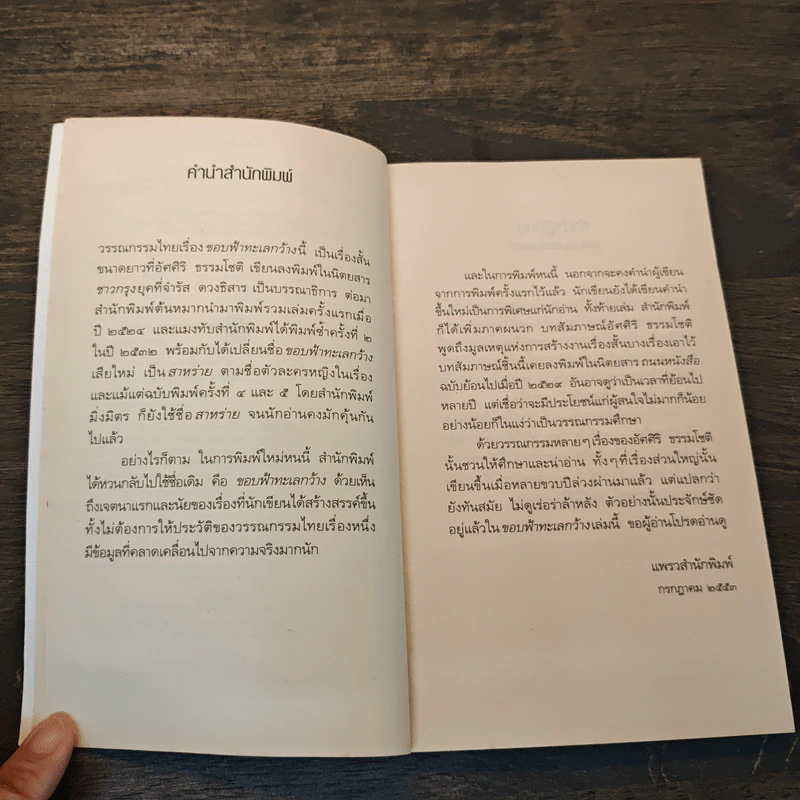 คำนำสำนักพิมพ์
วรรณกรรมไทยเรื่อง ขอบฟ้าทะเลกว้าง นี้ เป็นเรื่องสั้น
ขนาดยาวที่อัศศิริ ธรรมโชติ เขียนลงพิมพ์ในนิตยสาร
ชาวกรุง ยุคที่จำรัส ดวงธิสาร เป็นบรรณาธิการ ต่อมา
สำนักพิมพ์ต้นหมากนำมาพิมพ์รวมเล่มครั้งแรกเมื่อ
ปี ๒๕๒๔ และแมงทับสำนักพิมพ์ได้พิมพ์ซ้ำครั้งที่ ๒
ในปี ๒๕๓๒ พร้อมกับได้เปลี่ยนชื่อ ขอบฟ้าทะเลกว้าง
เสียใหม่ เป็น สาหร่าย ตามชื่อตัวละครหญิงในเรื่อง
และแม้แต่ฉบับพิมพ์ครั้งที่ ๔ และ ๕ โดยสำนักพิมพ์
มิ่งมิตร ก็ยังใช้ชื่อ สาหร่าย จนนักอ่านคงมักคุ้นกัน
ไปแล้ว
อย่างไรก็ตาม ในการพิมพ์ใหม่หนนี้ สำนักพิมพ์
ได้หวนกลับไปใช้ชื่อเดิม คือ ขอบฟ้าทะเลกว้าง ด้วยเห็น
ถึงเจตนาแรกและนัยของเรื่องที่นักเขียนได้สร้างสรรค์ขึ้น
ทั้งไม่ต้องการให้ประวัติของวรรณกรรมไทยเรื่องหนึ่ง
มีข้อมูลที่คลาดเคลื่อนไปจากความจริงมากนัก
และในการพิมพ์หนนี้ นอกจากจะคงคำนำผู้เขียน
จากการพิมพ์ครั้งแรกไว้แล้ว นักเขียนยังได้เขียนคำนำ
ขึ้นใหม่เป็นการพิเศษแก่นักอ่าน ทั้งท้ายเล่ม สำนักพิมพ์
ก็ได้เพิ่มภาคผนวก บทสัมภาษณ์อัศศิริ ธรรมโชติ
พูดถึงมูลเหตุแห่งการสร้างงานเรื่องสั้นบางเรื่องเอาไว้
บทสัมภาษณ์ชิ้นนี้เคยลงพิมพ์ในนิตยสาร ถนนหนังสือ
ฉบับย้อนไปเมื่อปี ๒๕๒๙ อันอาจดูว่าเป็นเวลาที่ย้อนไป
หลายปี แต่เชื่อว่าจะมีประโยชน์แก่ผู้สนใจไม่มากก็น้อย
อย่างน้อยก็ในแง่ว่าเป็นวรรณกรรมศึกษา
ด้วยวรรณกรรมหลายๆ เรื่องของอัศศิริ ธรรมโชติ
นั้นชวนให้ศึกษาและน่าอ่าน ทั้งๆ ที่เรื่องส่วนใหญ่นั้น
เขียนขึ้นเมื่อหลายขวบปีล่วงผ่านมาแล้ว แต่แปลกว่า
ยังทันสมัย ไม่ดูเร่อร่าล้าหลัง ตัวอย่างนั้นประจักษ์ชัด
อยู่แล้วใน ขอบฟ้าทะเลกว้าง เล่มนี้ ขอผู้อ่านโปรดอ่านดู
แพรวสำนักพิมพ์
กรกฎาคม ๒๕๕๓